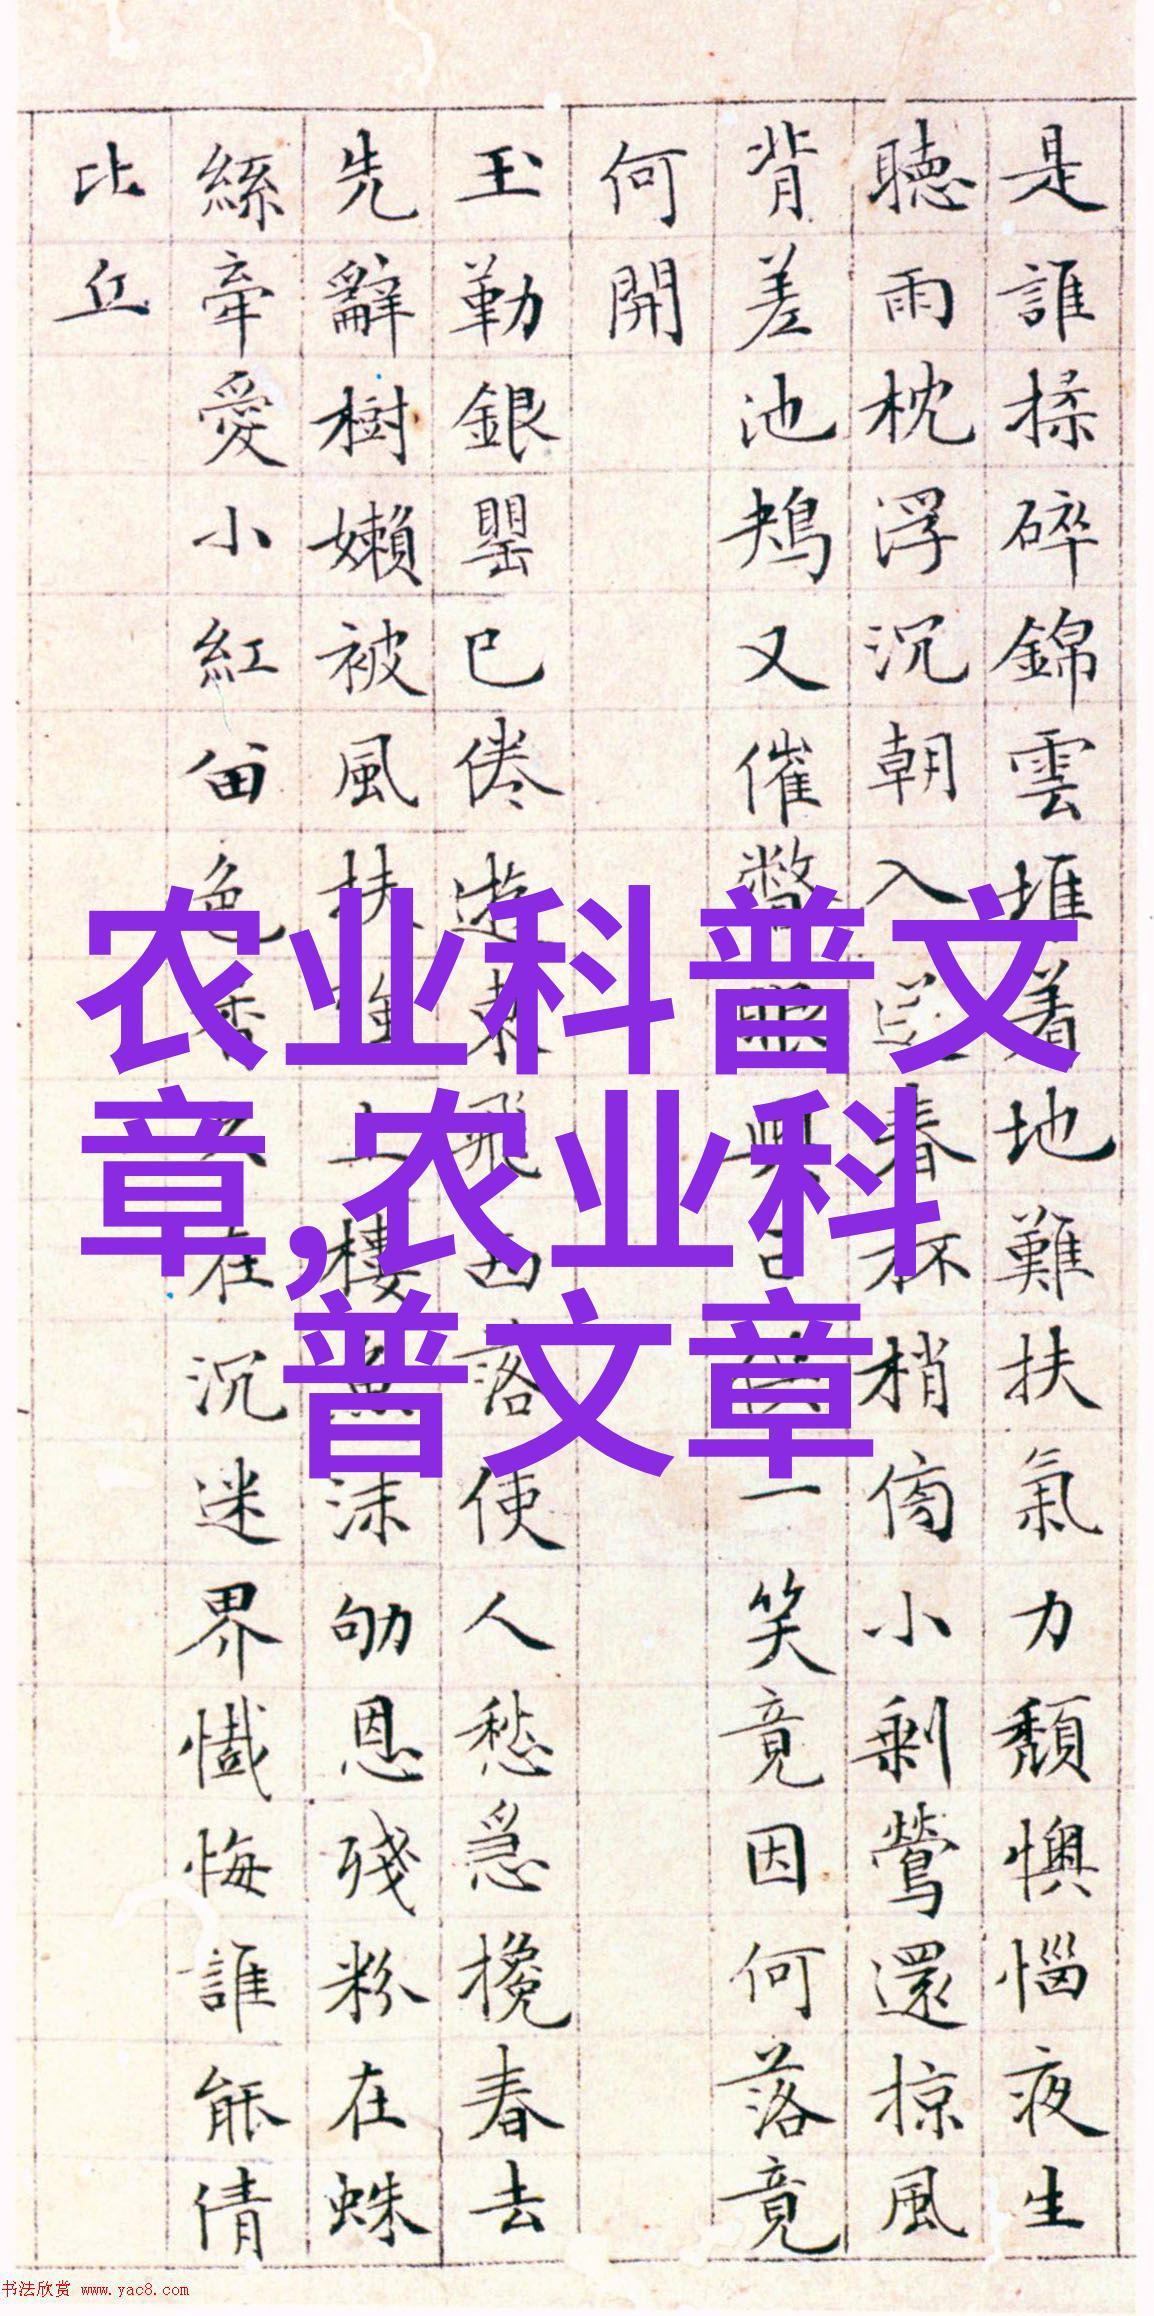 是誰揉碎錦雲堆着地難扶氣力頹懊惱夜生
聽雨枕浮沉朝入春杯梢傍小剩鶯還掠風
背差池鴂又催瞥眼興亡一笑竟因何落竟
何開
玉勒銀罌已倦遊東飛西落使人愁急攙春去
先辭樹嬾被風扶上樓魚沫劬恩殘粉在蛛
絲牽愛小紅留色香在沉迷界懺悔誰能倩
比丘
农业科普文
章,农业科
普文章
书法欣赏 www.yac8.com